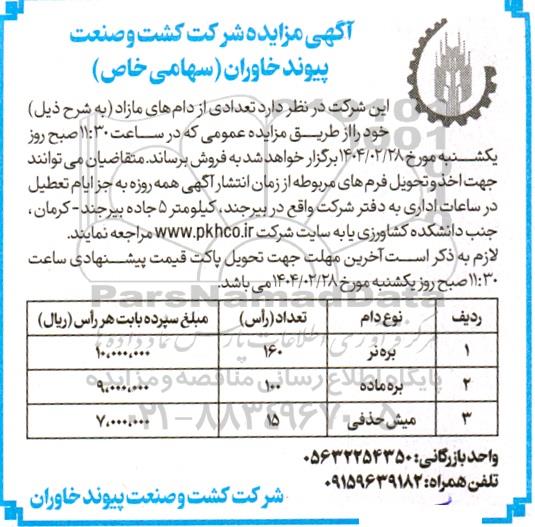 آگهی مزایده شرکت کشت و صنعت
پیوند خاوران (سهامی خاص)
این شرکت در نظر دارد تعدادی از دام های مازاد (به شرح ذیل)
خود را از طریق مزایده عمومی که در ساعت ۱۱:۳۰ صبح روز
یکشنبه مورخ ۱۴۰۴/۰۲/۲۸ برگزار خواهد شد به فروش برساند. متقاضیان می توانند
جهت اخذ و تحویل فرم های مربوطه از زمان انتشار آگهی همه روزه به جز ایام تعطیل
در ساعات اداری به دفتر شرکت واقع در بیرجند، کیلومتر ۵ جاده بیرجند - کرمان،
جنب دانشکده کشاورزی یا به سایت شرکت www.pkhco.ir مراجعه نمایند.
لازم به ذکر است آخرین مهلت جهت تحویل پاکت قیمت پیشنهادی ساعت
۱۱:۳۰ صبح روز یکشنبه مورخ ۱۴۰۴/۰۲/۲۸ می باشد.
ردیف نوع دام تعداد (رأس) مبلغ سپرده بابت هر رأس (ریال)
۱ بره نر ۱۶۰ ۱۰,۰۰۰,۰۰۰
۲ بره ماده ۱۰۰ ۹,۰۰۰,۰۰۰
۳ میش حذفی ۱۵ ۷,۰۰۰,۰۰۰
واحد بازرگانی: ۰۵۶۳۲۲۵۴۳۵۰
تلفن همراه: ۰۹۱۵۹۶۳۹۱۸۲
شرکت کشت و صنعت پیوند خاوران
ParsNamadData
مرکز فرآوری اطلاعات پارس نماد داده ها
پایگاه اطلاع رسانی مناقصه و مزایده
۰۲۱-۸۸۳۴۹۶۷۰-۵